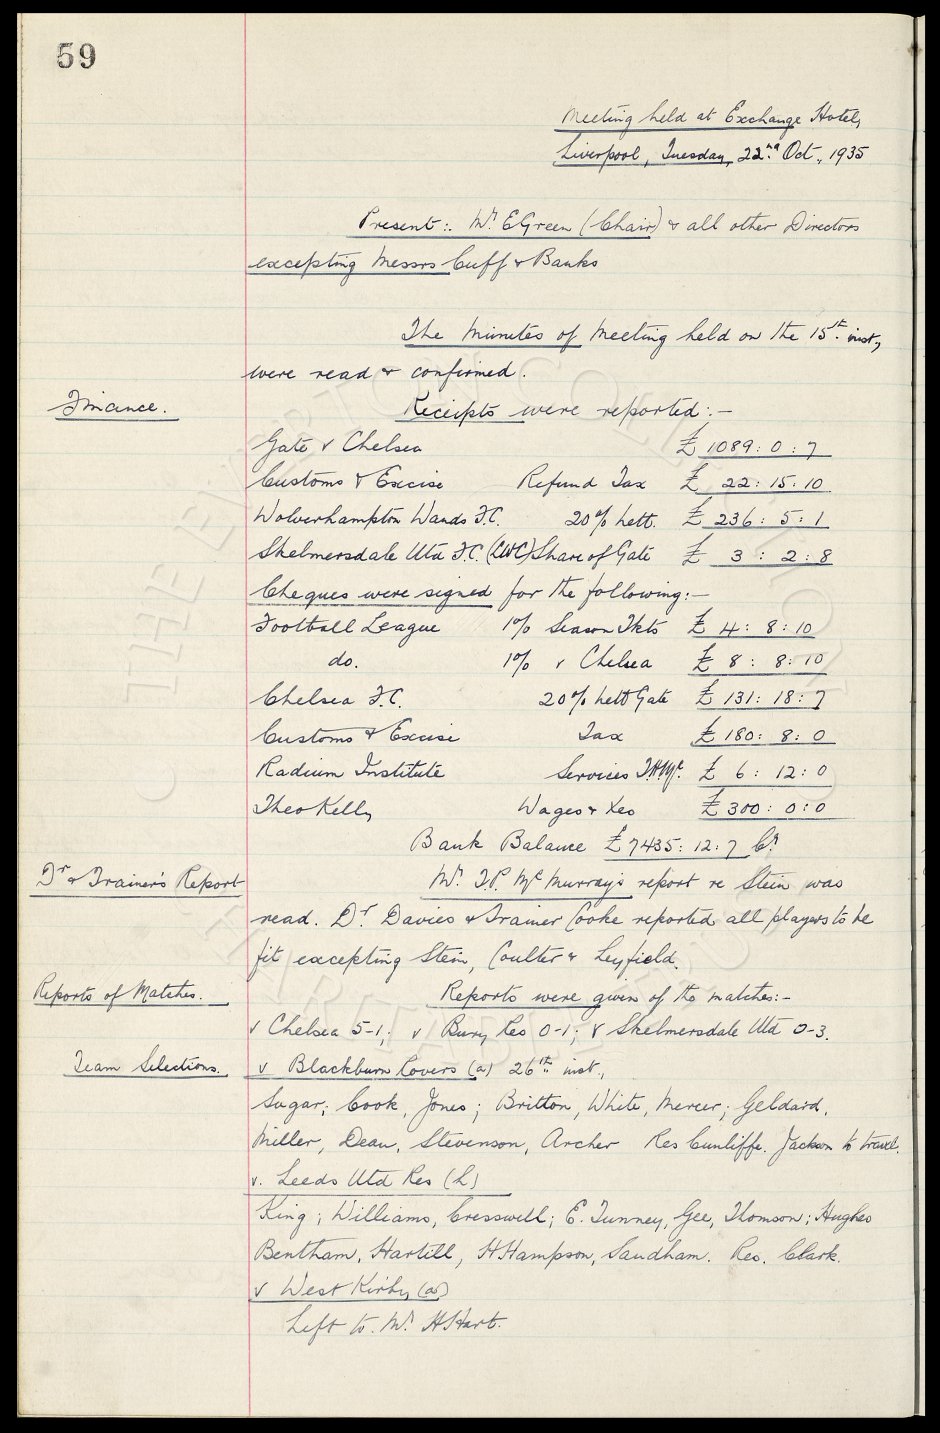 59
Meeting held at Exchange Hotel,
Liverpool, Tuesday, 22nd Oct., 1935
Present:. Mr. E Green (Chair) & all other Directors
excepting Messrs Cuff & Banks
The Minutes of Meeting held on the 15th. inst,
were read & confirmed.
Finance.
Receipts were reported:-
Gate v Chelsea £ 1089 : 0 : 7
Customs & Excise Refund Tax £ 22 : 15 : 10
Wolverhampton Wands F.C. 20% nett. £ 236 : 5 : 1
Skelmersdale Utd F.C. (LWC) Share of Gate £ 3 : 2 : 8
Cheques were signed for the following:-
Football League 1% Season Tkts £ 4 : 8 : 10
do. 1% v Chelsea £ 8 : 8 : 10
Chelsea F.C. 20% nett Gate £ 131 : 18 : 7
Customs & Excise Tax £ 180 : 8 : 0
Radium Institute Services T.P.Mc. £ 6 : 12 : 0
Theo Kelly Wages & Xes £ 300 : 0 : 0
Bank Balance £7435 : 12 : 7 Cr.
Dr & Trainer's Report
Mr. T.P. McMurray's report re Stein was
read. Dr. Davies & Trainer Cooke reported all players to be
fit excepting Stein, Coulter & Leyfield.
Reports of Matches.
Reports were given of the matches:-
v Chelsea 5-1; v Bury Res 0-1; v Skelmersdale Utd 0-3.
Team Selections.
v Blackburn Rovers (a) 26th inst.,
Sagar; Cook, Jones; Britton, White, Mercer; Geldard,
Miller, Dean, Stevenson, Archer Res Cunliffe. Jackson to travel.
v. Leeds Utd Res (H)
King; Williams, Cresswell; E. Tunney, Gee, Thomson; Hughes
Bentham, Hartill, H Hampson, Sandham. Res. Clark.
v West Kirby (a)
Left to Mr. H Hart.
THE EVERTON COLLECTION
CHARITABLE TRUST